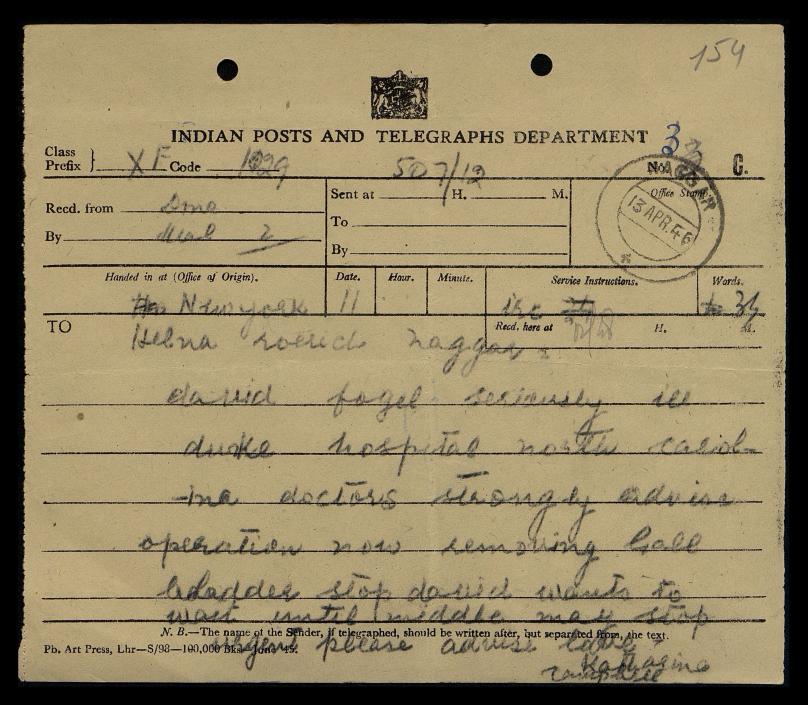 154
INDIAN POSTS AND TELEGRAPHS DEPARTMENT 33
Class
Prefix } XF Code 1829 507/12 No. C.
Office Stamp.
NAGGAR
13 APR. 46
Recd. from Dma Sent at H. M.
To
By
By
Handed in at (Office of Origin). Date. Hour. Minute. Service Instructions. Words.
New york 11
TO Recd. here at H. M.
Helena roerich naggar =
david fogel seriously ill
duke hospital north carol-
-ina doctors strongly advise
operation now removing Gall
bladder stop david wants to
wait until middle may stop
N. B.—The name of the Sender, if telegraphed, should be written after, but separated from, the text.
urgent please advise love =
Pb. Art Press, Lhr—S/98—100,000 Bks—June '45.
Katharine
campbell